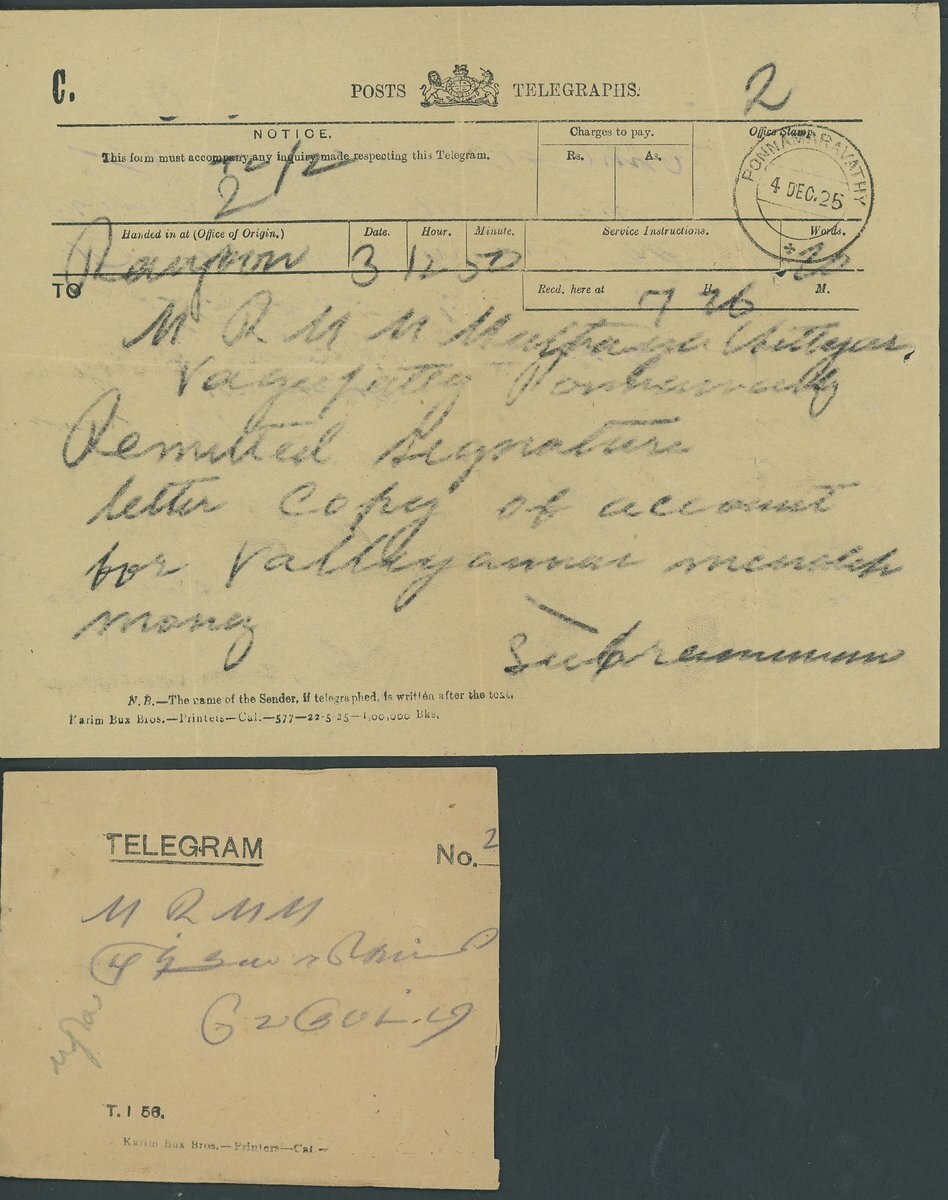 C.
POSTS TELEGRAPHS.
2
NOTICE.
This form must accompany any inquiry made respecting this Telegram.
Charges to pay.
Rs. As.
Office Stamp.
PONNAMARAVATHY
4 DEC. 25
2
Handed in at (Office of Origin.) Date. Hour. Minute. Service Instructions. Words.
Rangoon 3 12 50 20
TO
Recd. here at H. M.
7 26
M R M M Chettyar,
Remitted signature
letter copy of account
for Valliyammai
money
Subramanian
N.B.—The name of the Sender, if telegraphed, is written after the text.
Karim Bux Bros.—Printers—Cal.—577—22-5-25—1,00,000 Bks.
TELEGRAM
No. 2
M R M M
T. I 56.
Karim Bux Bros.—Printers—Cal.—